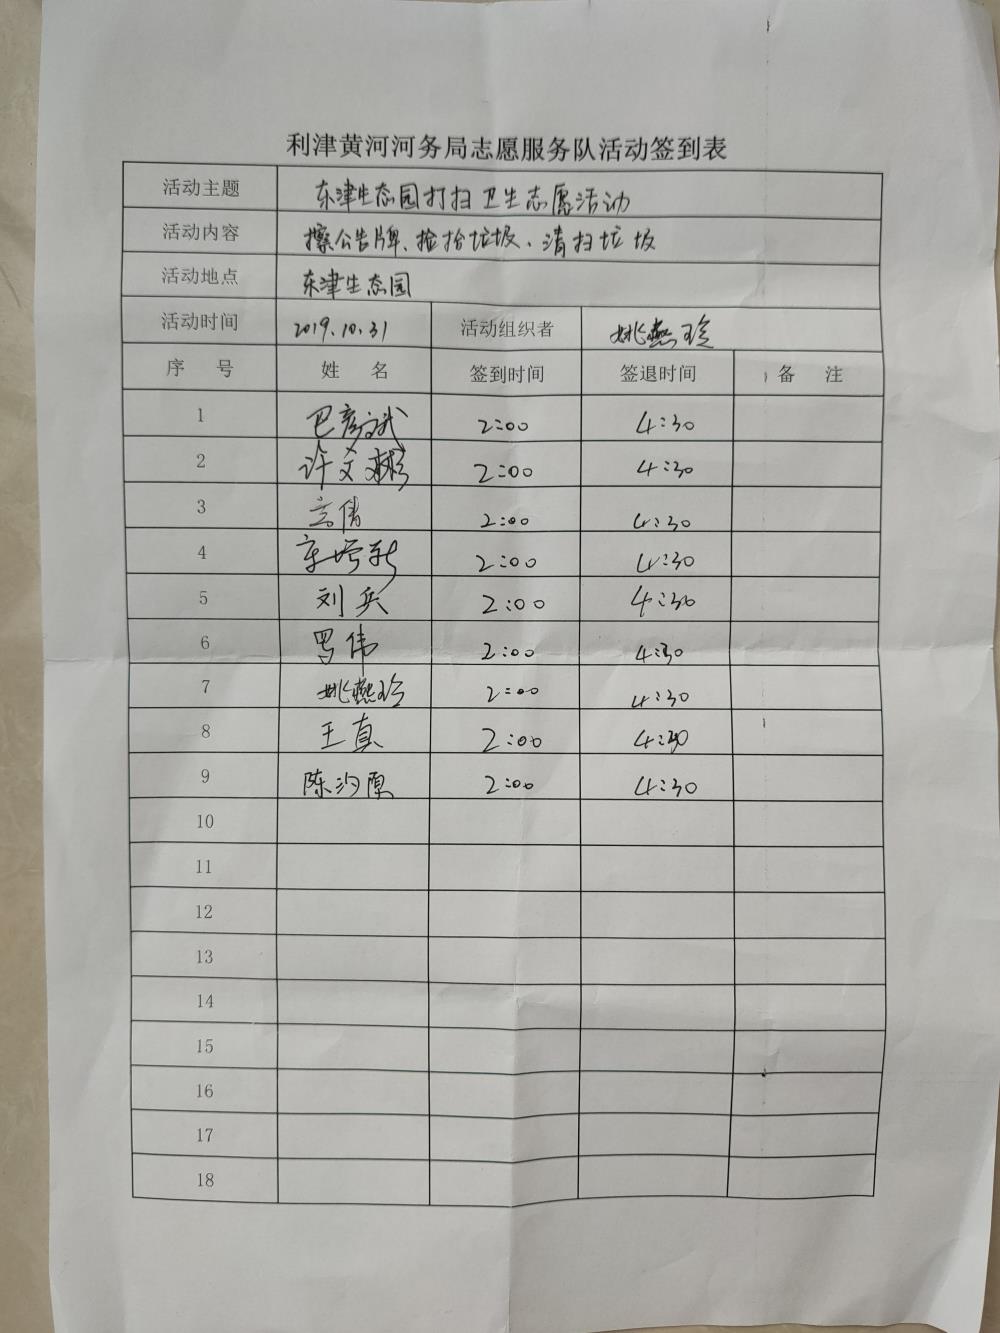 利津黄河河务局志愿服务队活动签到表
活动主题 东津生态园打扫卫生志愿活动
活动内容 擦公告牌、捡拾垃圾、清扫垃圾
活动地点 东津生态园
活动时间 2019.10.31 活动组织者 姚燕玲
序 号 姓 名 签到时间 签退时间 备 注
1 巴彦斌 2:00 4:30
2 许文彬 2:00 4:30
3 2:00 4:30
4 2:00 4:30
5 刘兵 2:00 4:30
6 罗伟 2:00 4:30
7 姚燕玲 2:00 4:30
8 王真 2:00 4:30
9 陈汐原 2:00 4:30
10
11
12
13
14
15
16
17
18